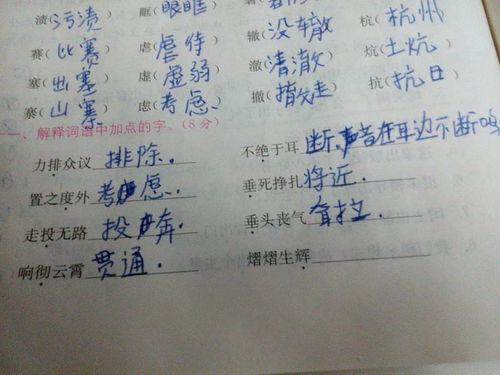 渍(污渍) 眶(眼眶)
赛(比赛) 虐(虐待) 辙(没辙) 杭(杭州)
塞(出塞) 虚(虚弱) 澈(清澈) 炕(土炕)
寨(山寨) 虑(考虑) 撤(撤走) 抗(抗日)
、解释词语中加点的字。(8分)
力排众议 排除. 不绝于耳 断.声音在耳边不断鸣
置之度外 考虑. 垂死挣扎 将近.
走投无路 投奔. 垂头丧气 耷拉.
响彻云霄 贯通. 熠熠生辉